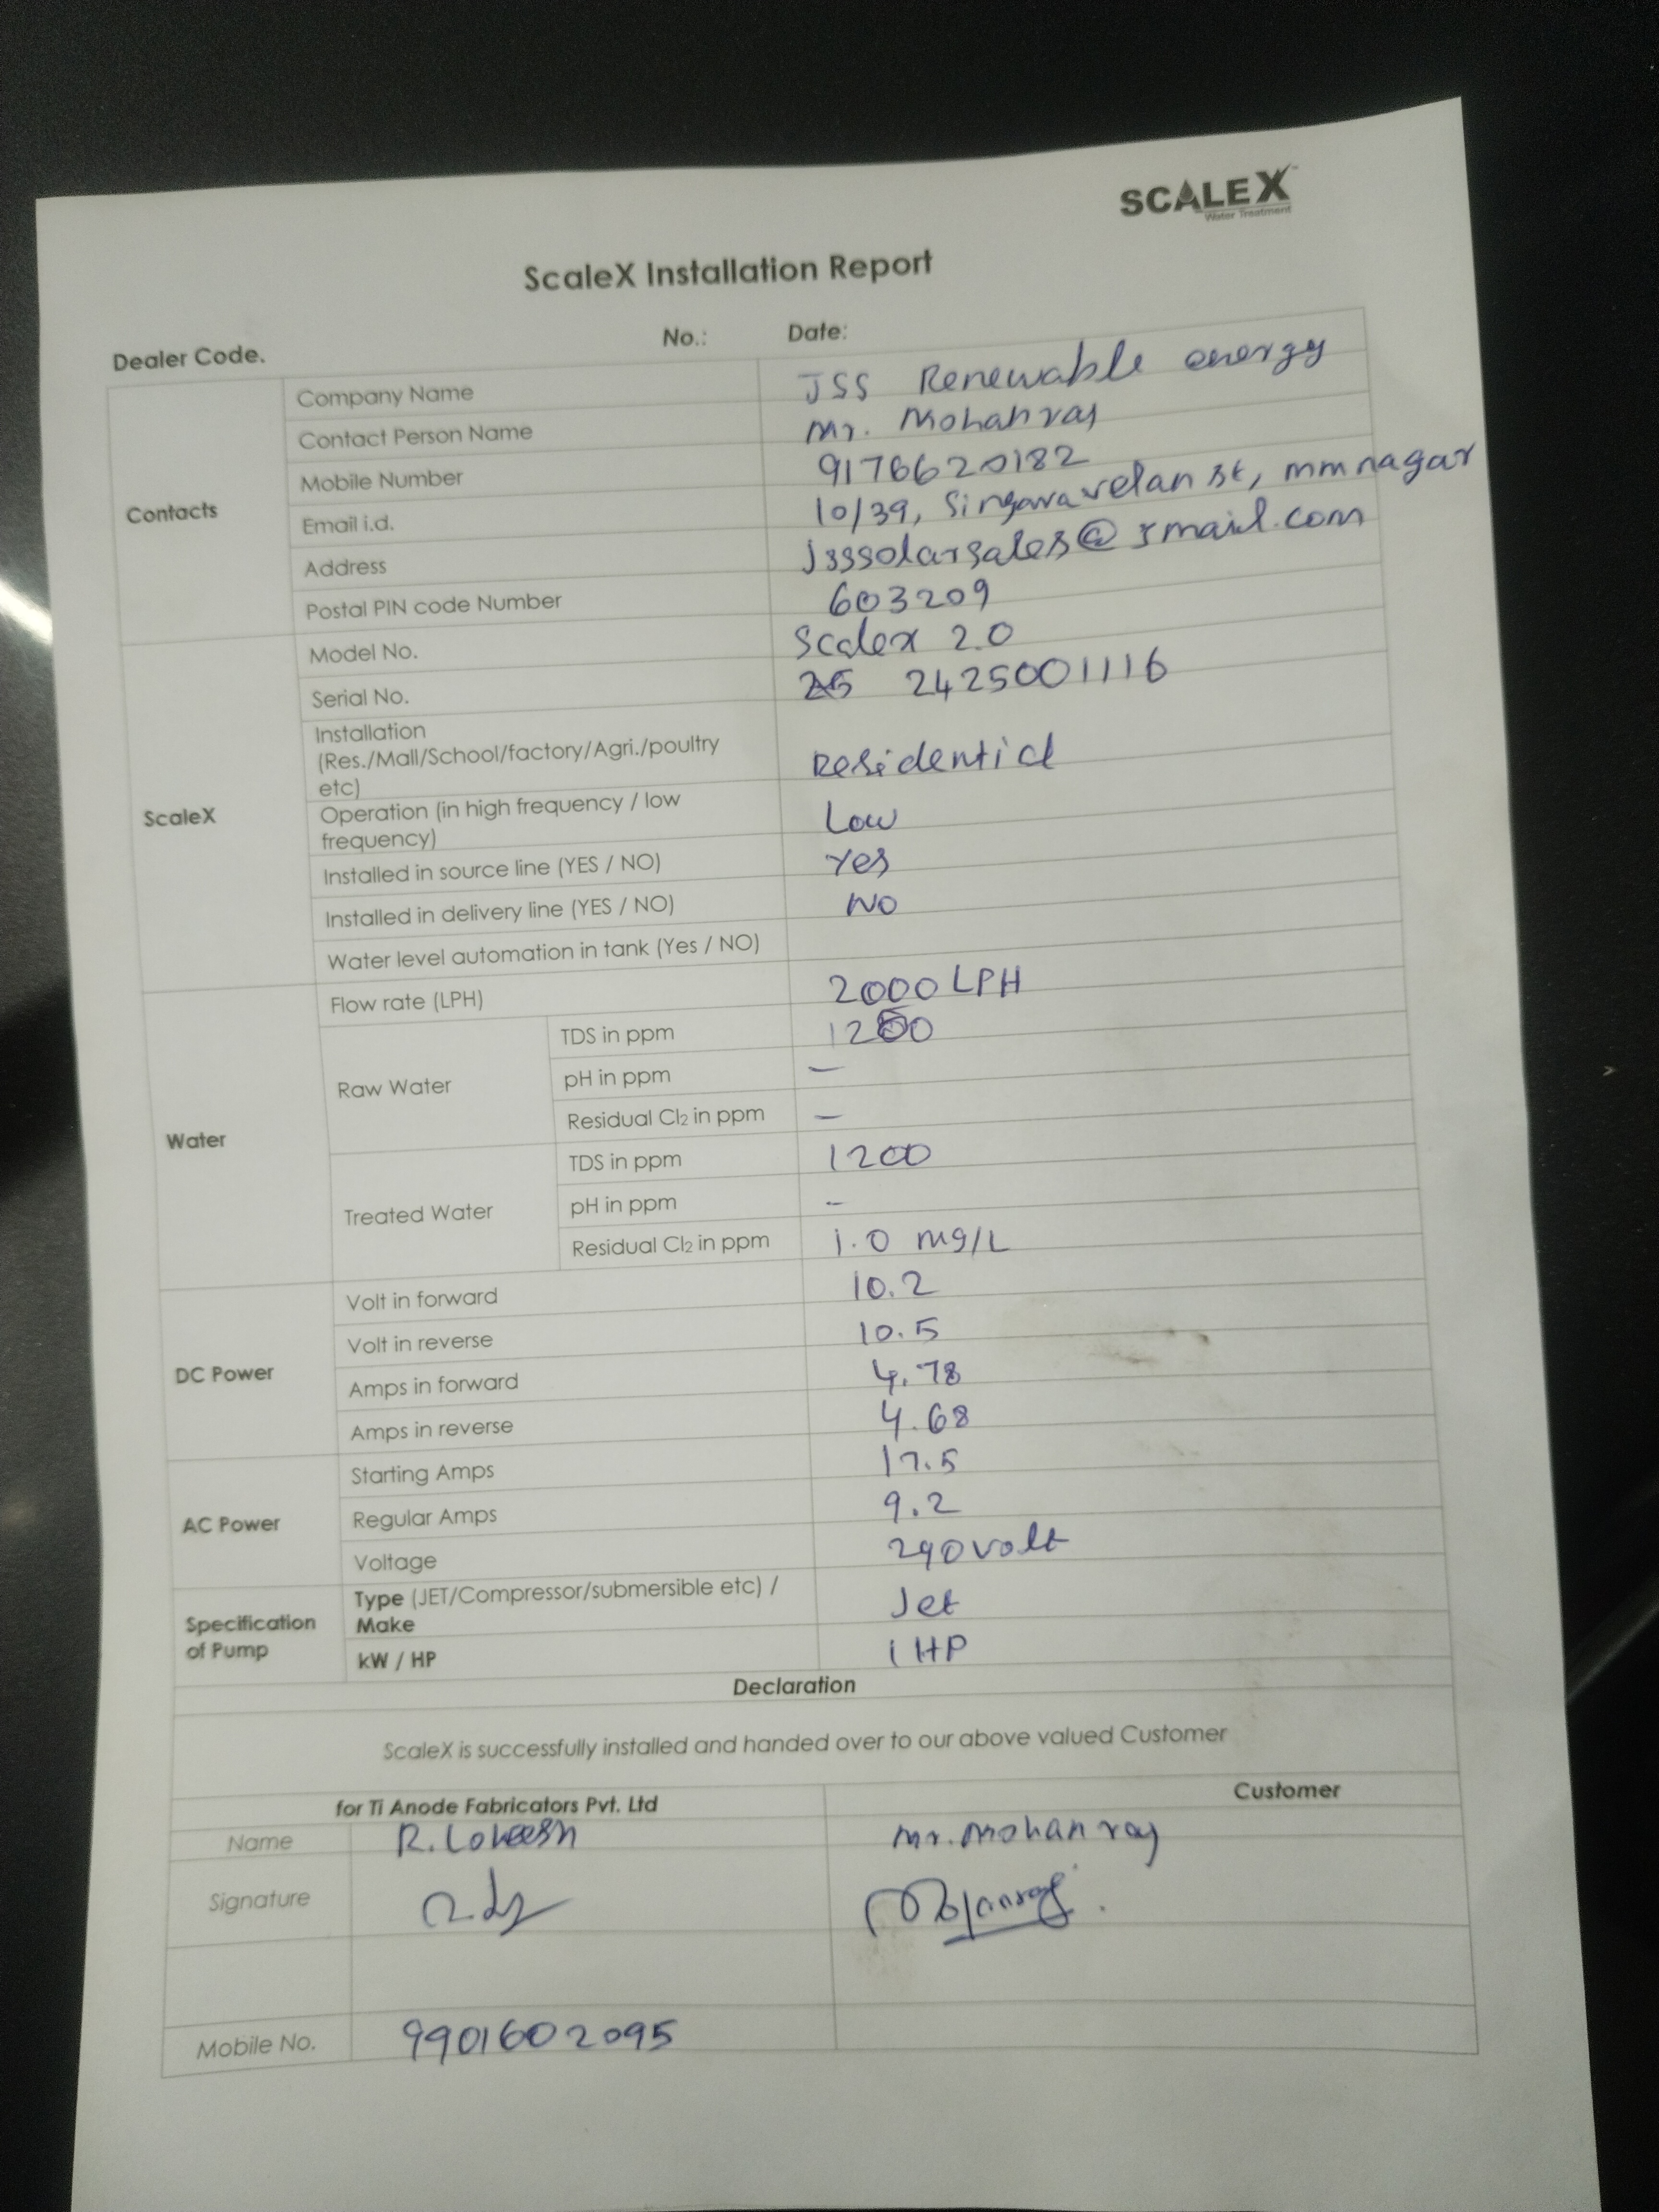 SCALEX
Water Treatment
ScaleX Installation Report
Dealer Code. No.: Date:
Contacts
Company Name JSS Renewable energy
Contact Person Name Mr. Mohanraj
Mobile Number 9176620182
Email i.d. 10/39, Singaravelan st, mmnagar
Address jsssolarsales@gmail.com
Postal PIN code Number 603209
ScaleX
Model No. Scalex 2.0
Serial No. 2425001116
Installation
(Res./Mall/School/factory/Agri./poultry
etc) Residential
Operation (in high frequency / low
frequency) Low
Installed in source line (YES / NO) Yes
Installed in delivery line (YES / NO) NO
Water level automation in tank (Yes / NO)
Water
Flow rate (LPH) 2000 LPH
Raw Water
TDS in ppm 1250
pH in ppm —
Residual Cl2 in ppm —
Treated Water
TDS in ppm 1200
pH in ppm -
Residual Cl2 in ppm 1.0 mg/L
DC Power
Volt in forward 10.2
Volt in reverse 10.5
Amps in forward 4.78
Amps in reverse 4.68
AC Power
Starting Amps 17.5
Regular Amps 9.2
Voltage 240volt
Specification
of Pump
Type (JET/Compressor/submersible etc) /
Make Jet
kW / HP 1 HP
Declaration
ScaleX is successfully installed and handed over to our above valued Customer
for Ti Anode Fabricators Pvt. Ltd Customer
Name R. Lokeesh Mr. Mohanraj
Signature
Mobile No. 9901602095